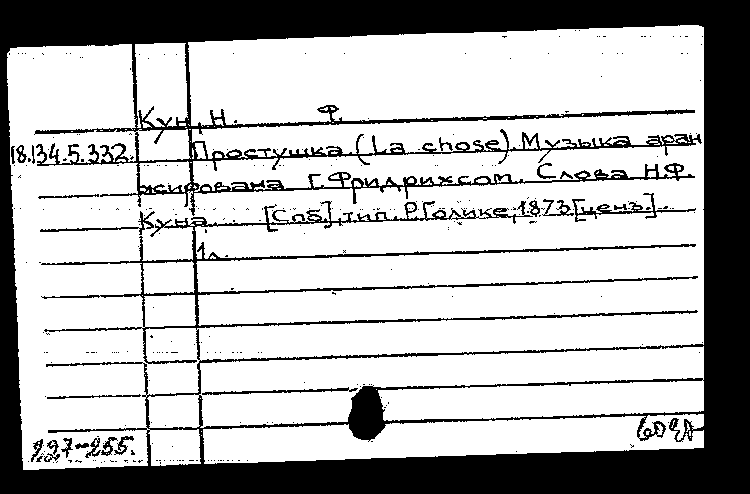 Кун, Н. Ф.
18.134.5.332. Простушка (La chose). Музыка аран
жирована Г. Фридрихсом. Слова Н.Ф.
Куна. [Спб], тип. Р. Голике, 1873 [ценз.].
1л.
227-255.